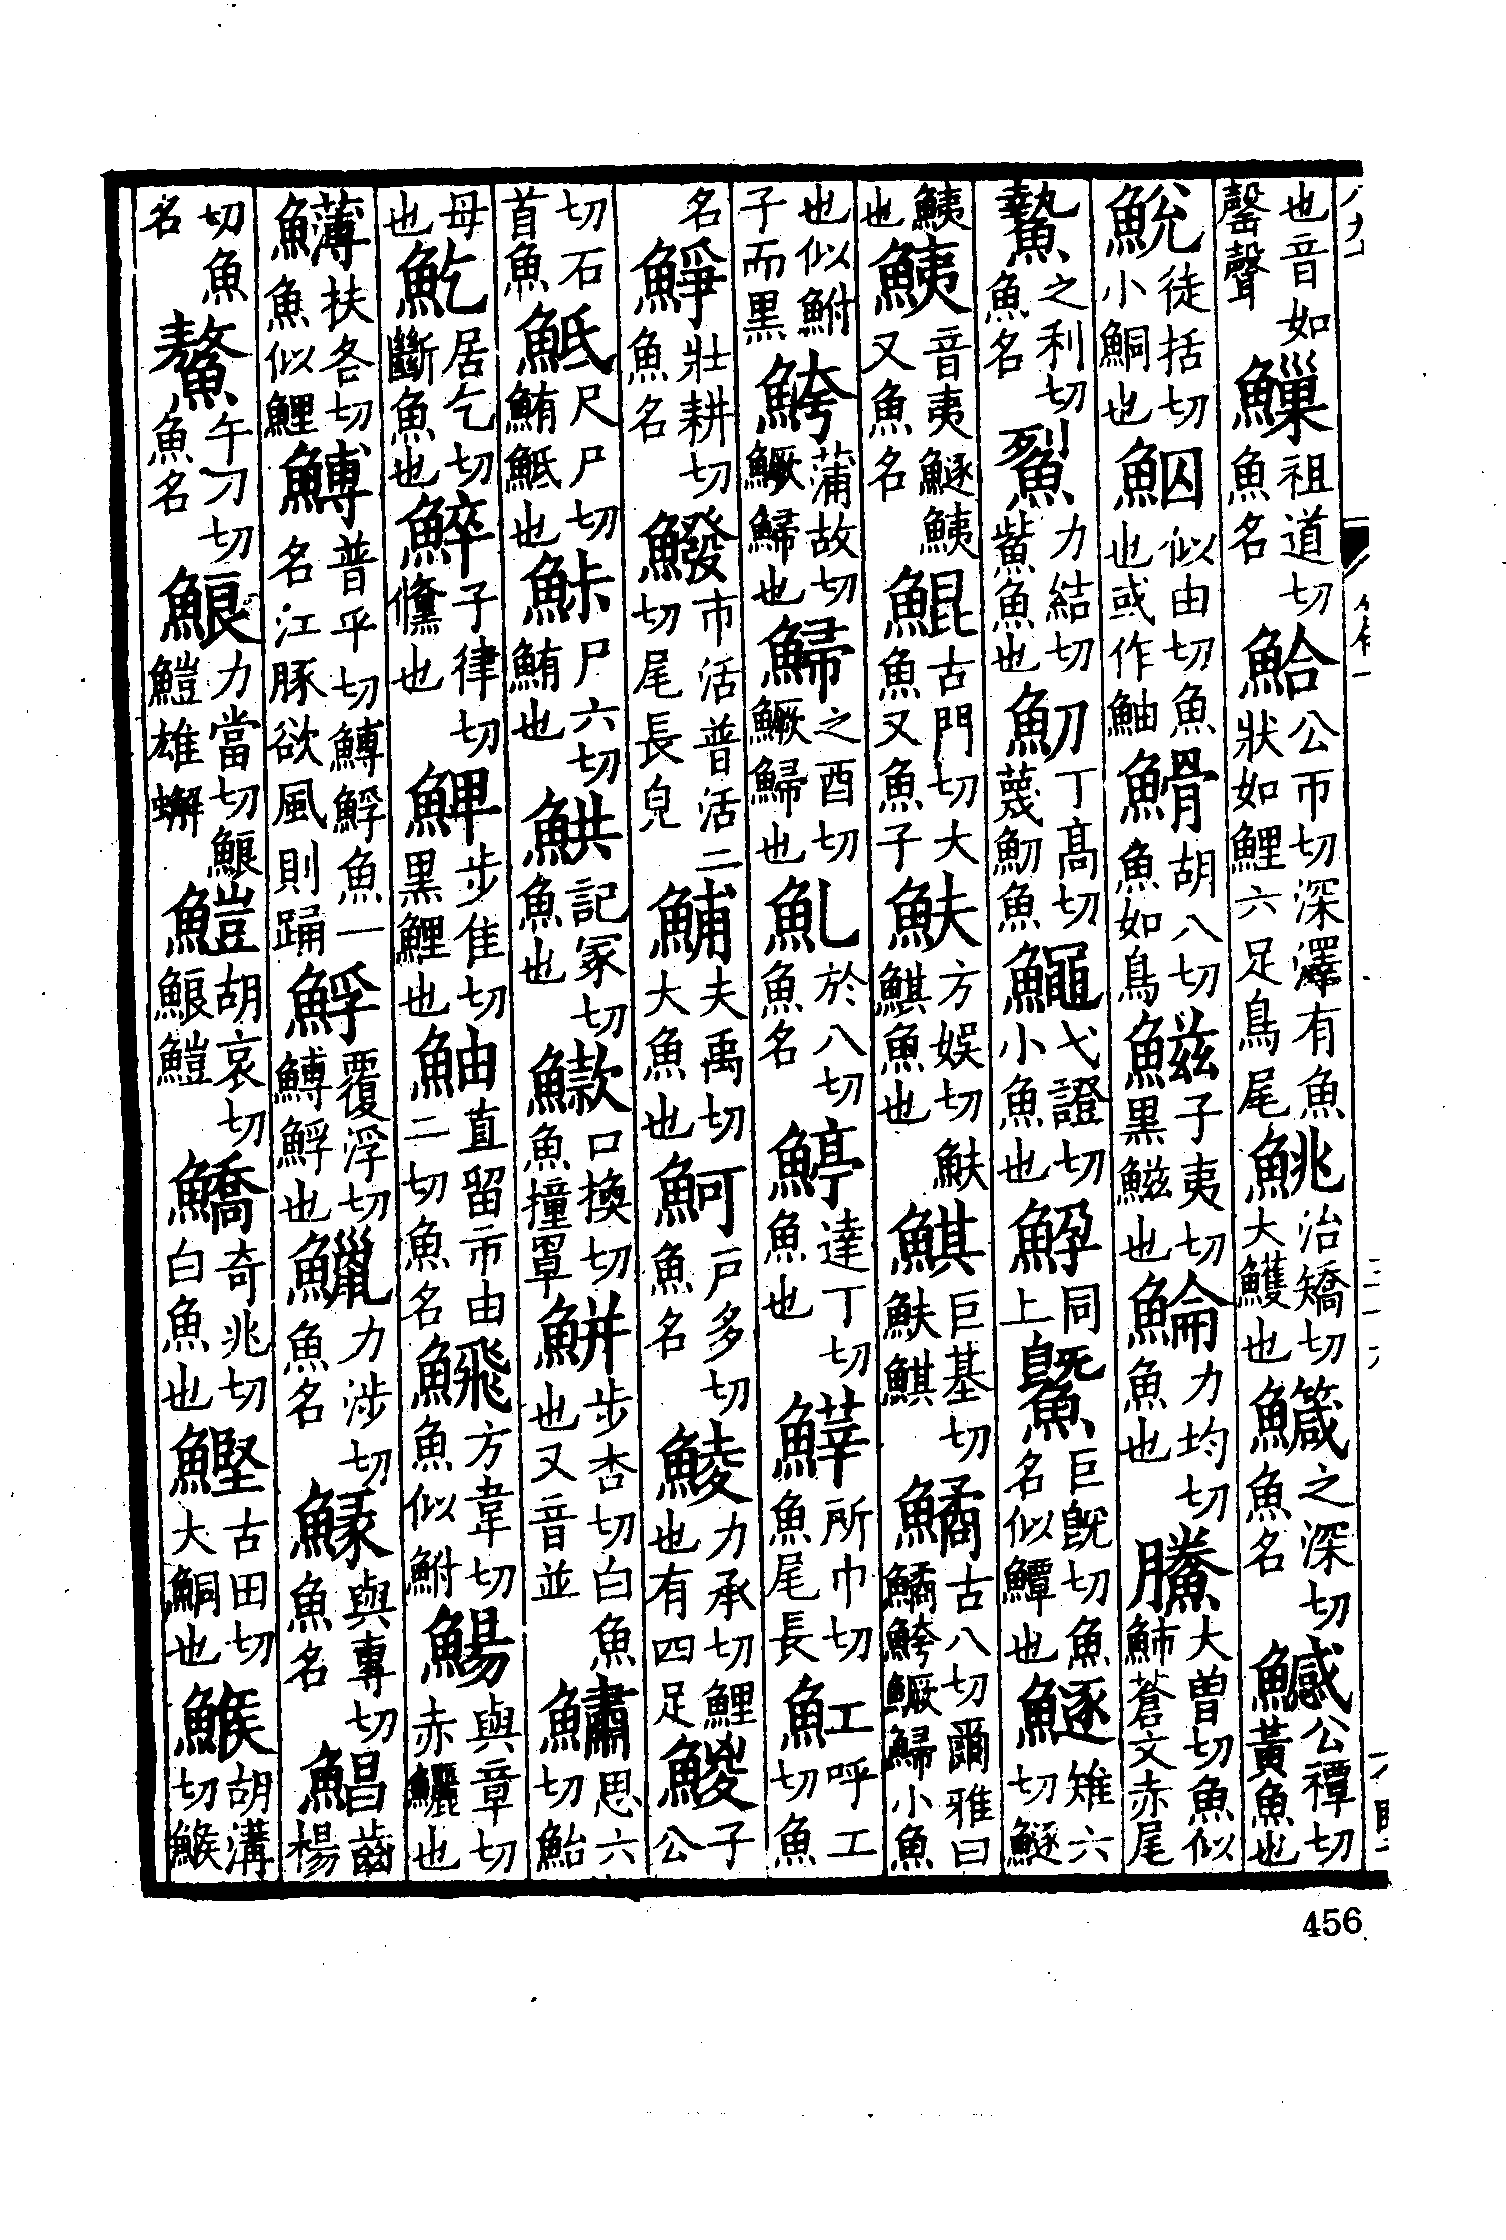 也音如罄聲䲃祖道切魚名鮯公帀切深澤有魚狀如鯉六足鳥尾鮡治矯切大鱯也鱵之深切魚名鱤公禫切黃魚也
鮵徒括切小鮦也鮂似由切魚也或作鮋䱻胡八切魚如鳥鰦子夷切黑鰦也鯩力均切魚也鰧大曾切魚似蒼文赤尾
䲀之利切魚名鮤力結切鮆魚也魛丁高切蔑魛魚鱦弋證切小魚也䱆同上鱀巨旣切魚名似鱏也鱁雉六切鱁
鮧也鮧音夷鱁鮧又魚名鯤古門切大魚又魚子方娛切鯕魚也鯕巨基切鯕鱊古八切爾雅曰鱊鮬鱖鯞小魚
也似鮒子而黑鮬蒲故切鱖鯞也鯞之酉切鱖鯞也䰲於八切魚名達丁切魚也所巾切魚尾長魟呼工切魚
名䱢壯耕切魚名鱍市活普活二切尾長皃鯆夫禹切大魚也魺戶多切魚名鯪力承切鯉也有四足鯼子公
切石首魚尺尸切鮪也鮛尸六切鮪也䱋記冢切魚也口換切魚撞罩鮩步杏切白魚也又音並鱐思六切鮐
母也䰴居乞切斷魚也䱣子律切也步隹切黑鯉也鮋直留市由二切魚名方韋切魚似鮒鰑與章切赤鱺也
扶各切魚似鯉普乎切䱐魚一名江豚欲風則踊䱐覆浮切䱐也鱲力涉切魚名䱲與專切魚名鯧齒楊
切魚名鰲午刀切魚名力當切雄蠏胡哀切鱎奇兆切白魚也鰹古田切大鮦也鯸胡溝切鯸
456